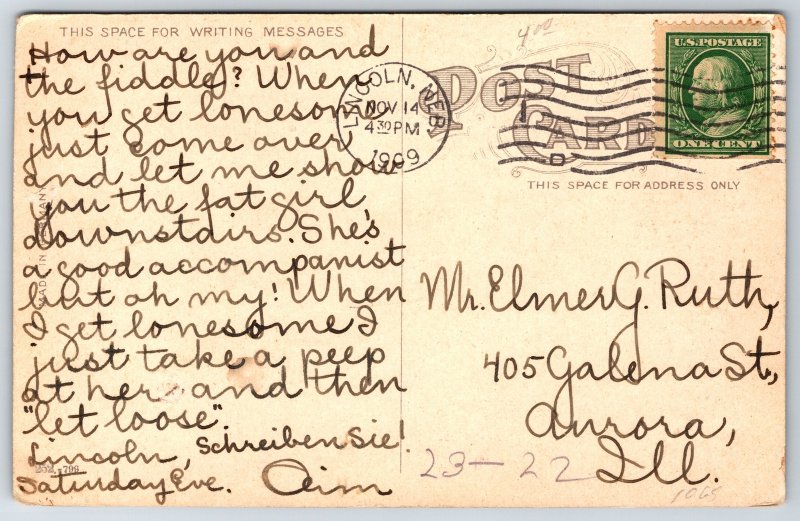 THIS SPACE FOR WRITING MESSAGES
How are you and
the fiddle? When
you get lonesome
just come over
and let me show
you the fat girl
downstairs. She's
a good accompanist
but oh my! When
I get lonesome I
just take a peep
at her and then
"let loose".
Lincoln, Schreiben Sie!
Saturday Eve. Aim
LINCOLN, NEB.
NOV 14
4 30 PM
1909
POST
CARD
1
D
U.S. POSTAGE
ONE CENT
THIS SPACE FOR ADDRESS ONLY
Mr. Elmer G. Ruth,
405 Galena St.,
Aurora,
Ill.
23-22
1065
4.00